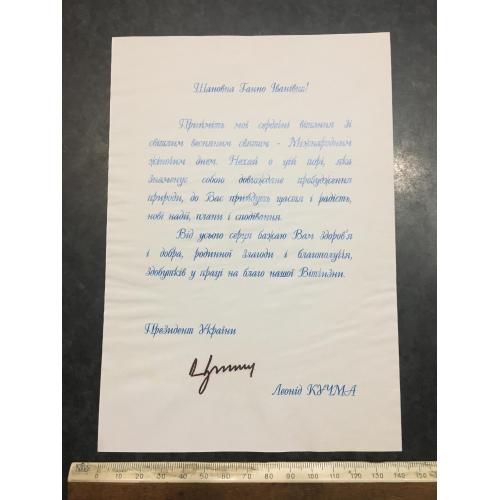 Шановна Ганно Іванівно!
Прийміть мої сердечні вітання зі
світлим весняним святом - Міжнародним
жіночим днем. Нехай о цій порі, яка
знаменує собою довгождане пробудження
природи, до Вас прийдуть щастя і радість,
нові надії, плани і сподівання.
Від усього серця бажаю Вам здоров'я
і добра, родинної злагоди і благополуччя,
здобутків у праці на благо нашої Вітчизни.
Президент України
Леонід КУЧМА
0 10 20 30 40 50 60 70 80 90 100 110 120 130 140 150